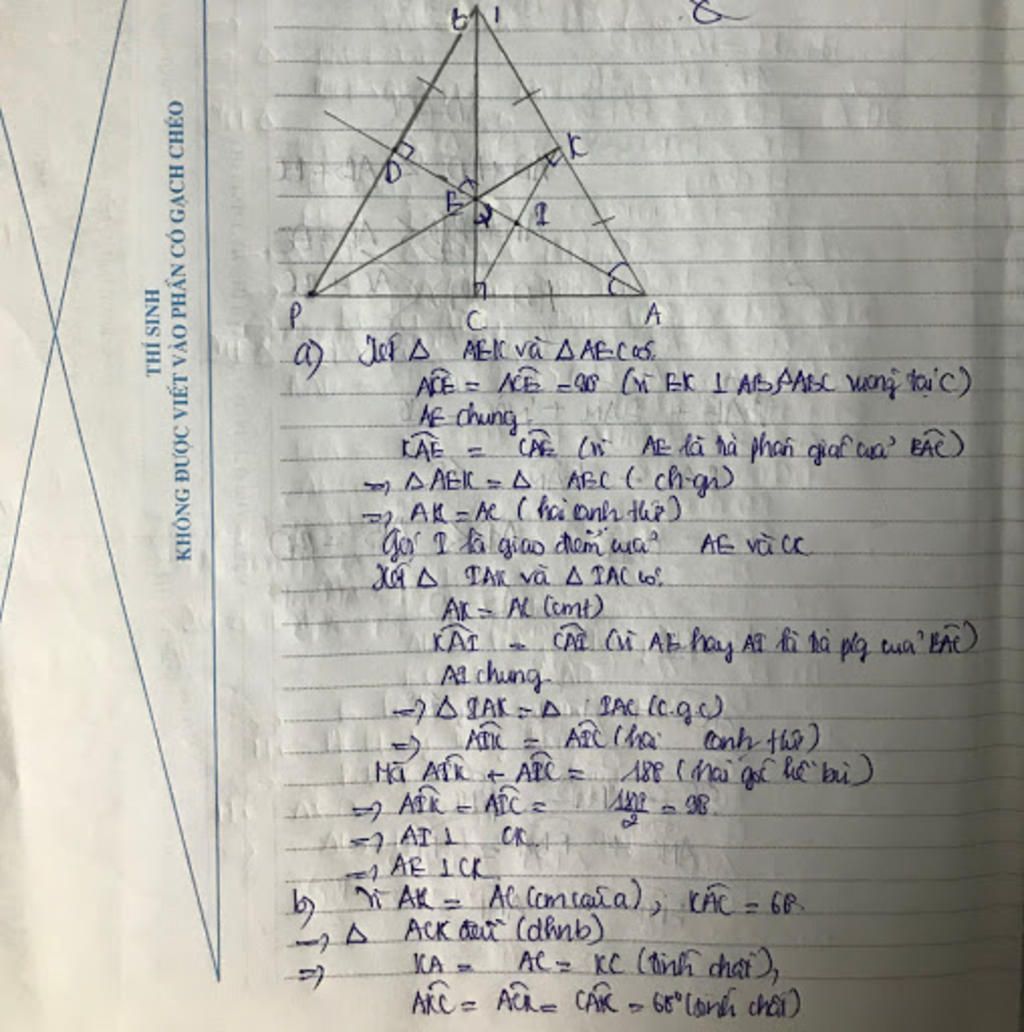 THÍ SINH
KHÔNG ĐƯỢC VIẾT VÀO PHẦN CÓ GẠCH CHÉO
B 1
K
D
E
I
P
C
A
a) Xét Δ AEK và Δ AEC có:
ACE = ACE = 90 (vì EK ⊥ AB, ΔABC vuông tại C)
AE chung
KAE = CAE (vì AE là tia phân giác của BAC)
=> Δ AEK = Δ AEC (ch-gn)
=> AK = AC (hai cạnh t/ứ)
Gọi I là giao điểm của AE và CK
Xét Δ IAK và Δ IAC có:
AK = AC (cmt)
KAI = CAI (vì AE hay AI là tia p/g của BAC)
AI chung
=> Δ IAK = Δ IAC (c.g.c)
=> AIK = AIC (hai cạnh t/ứ)
Mà AIK + AIC = 180 (hai góc kề bù)
=> AIK = AIC = 180/2 = 90
=> AI ⊥ CK
=> AE ⊥ CK
b) Vì AK = AC (cm câu a), KAC = 60
=> Δ ACK đều (dhnb)
=> KA = AC = KC (tính chất),
AKC = ACK = CAK = 60° (tính chất)